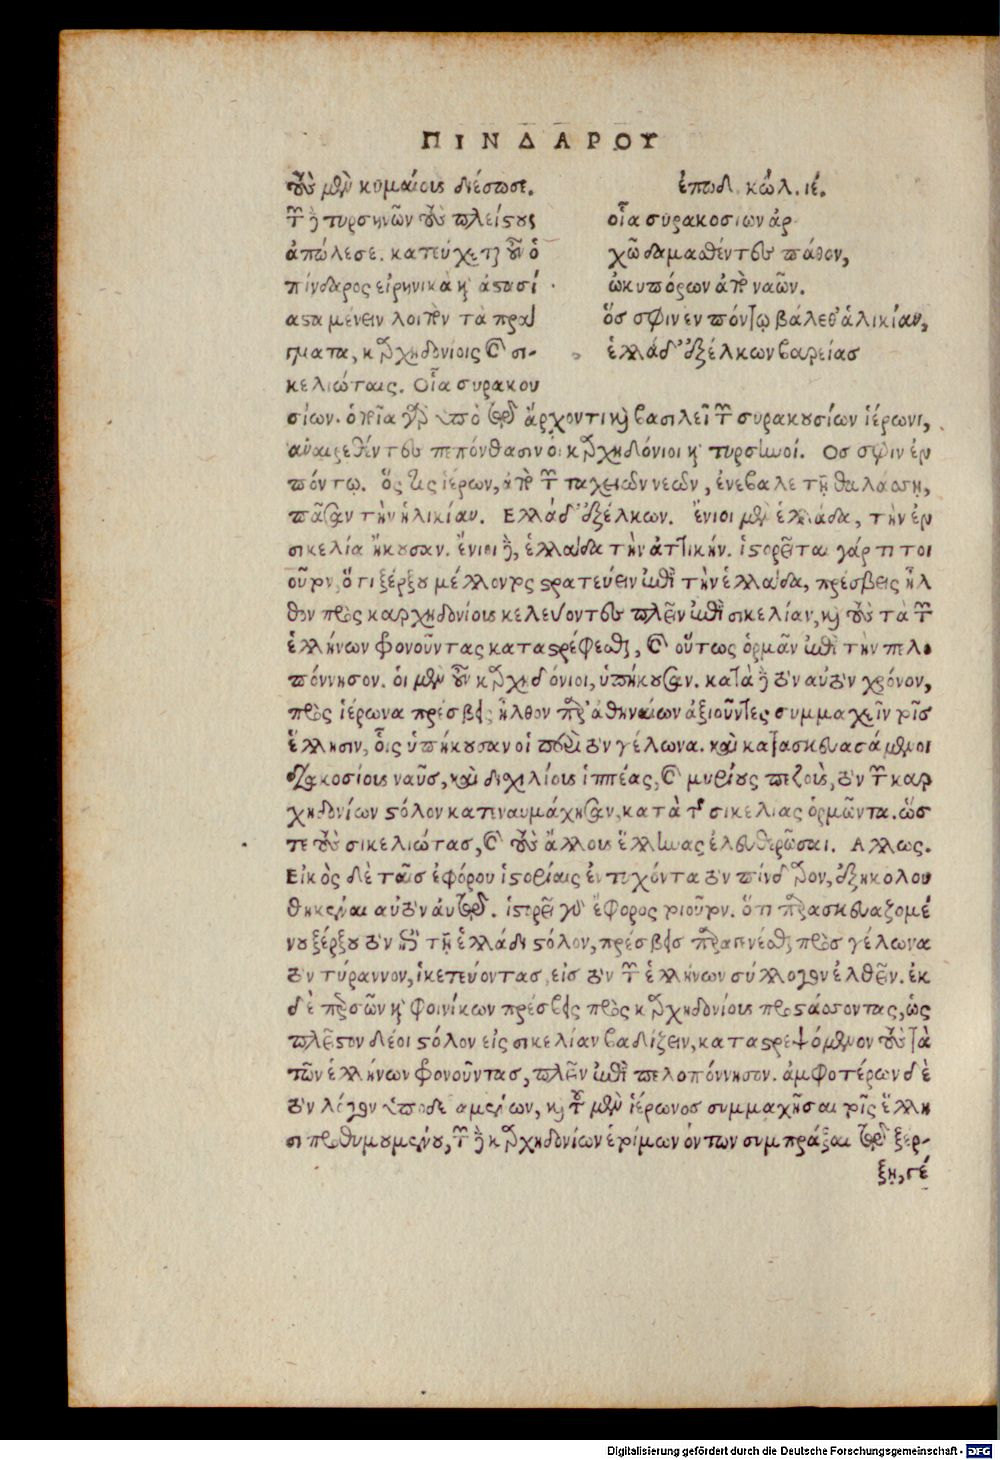 ΠΙΝΔΑΡΟΥ
τοὺς μὲν κυμαίους διέσωσε.
τῶν δὲ τυρσηνῶν τοὺς πλείστους
ἀπώλεσε. κατεύχεται οὖν ὁ
πίνδαρος εἰρηνικὰ καὶ ἀστασί
αστα μένειν λοιπὸν τὰ πρά
γματα, καρχηδονίοις καὶ σι-
κελιώταις. Οἷα συρακου
ἐπωδ. κώλ. ιέ.
οἷα συρακοσίων ἀρ
χῷ δαμασθέντες πάθον,
ὠκυπόρων ἀπὸ ναῶν.
ὅς σφιν ἐν πόντῳ βάλεθ' ἁλικίαν,
ἑλλάδ' ἐξέλκων βαρείας
σίων. ὁποῖα γὰρ ὑπὸ τῷ ἄρχοντι καὶ βασιλεῖ τῶν συρακουσίων ἱέρωνι,
αἱρεθέντες πεπόνθασιν οἱ καρχηδόνιοι καὶ τυρσηνοί. Ος σφιν ἐν
πόντῳ. ὅς τις ἱέρων, ἀπὸ τῶν ταχειῶν νεῶν, ἐνέβαλε τῇ θαλάσσῃ,
πᾶσαν τὴν ἡλικίαν. Ελλάδ' ἐξέλκων. ἔνιοι μὲν ἑλλάδα, τὴν ἐν
σικελία ἤκουσαν. ἔνιοι δὲ, ἑλλάδα τὴν ἀττικήν. ἱστορεῖται γάρ τι τοι
οῦτον, ὅτι ξέρξου μέλλοντος στρατεύειν ἐπὶ τὴν ἑλλάδα, πρέσβεις ἦλ
θον πρὸς καρχηδονίους κελεύοντες πλεῖν ἐπὶ σικελίαν, καὶ τοὺς τὰ τῶν
ἑλλήνων φρονοῦντας καταστρέφεσθαι, καὶ οὕτως ὁρμᾶν ἐπὶ τὴν πελο
πόννησον. οἱ μὲν οὖν καρχηδόνιοι, ὑπήκουσαν. κατὰ δὲ τὸν αὐτὸν χρόνον,
πρὸς ἱέρωνα πρέσβεις ἦλθον παρ' ἀθηναίων ἀξιοῦντες συμμαχεῖν τοῖς
ἕλλησιν, οἷς ὑπήκουσαν οἱ περὶ τὸν γέλωνα. καὶ κατασκευασάμενοι
διακοσίους ναῦς, καὶ δισχιλίους ἱππέας, καὶ μυρίους πεζοὺς, τὸν τῶν καρ
χηδονίων στόλον κατεναυμάχησαν, κατὰ τῆς σικελίας ὁρμῶντα. ὥσ
τε τοὺς σικελιώτας, καὶ τοὺς ἄλλους ἕλληνας ἐλευθερῶσαι. Αλλως.
Εἰκὸς δὲ ταῖς ἐφόρου ἱστορίαις ἐντυχόντα τὸν πίνδαρον, ἐξηκολου
θηκέναι αὐτὸν αὐτῷ. ἱστορεῖ γὰρ ἔφορος τοιοῦτον. ὅτι παρασκευαζομέ
νου ξέρξου τὸν ἐπὶ τῇ ἑλλάδι στόλον, πρέσβεις παραγενέσθαι πρὸς γέλωνα
τὸν τύραννον, ἱκετεύοντας, εἰς τὸν τῶν ἑλλήνων σύλλογον ἐλθεῖν. ἐκ
δὲ περσῶν καὶ φοινίκων πρέσβεις πρὸς καρχηδονίους προστάσσοντας, ὡς
πλεῖστον δέοι στόλον εἰς σικελίαν βαδίζειν, καταστρεψόμενον τοὺς τὰ
τῶν ἑλλήνων φρονοῦντας, πλεῖν ἐπὶ πελοπόννησον. ἀμφοτέρων δὲ
τὸν λόγον ὑποδεξαμένων, καὶ τοῦ μὲν ἱέρωνος συμμαχῆσαι τοῖς ἕλλη
σι προθυμουμένου, τῶν δὲ καρχηδονίων ἑτοίμων ὄντων συμπρᾶξαι τῷ ξέρ-
ξῃ, γέ
Digitalisierung gefördert durch die Deutsche Forschungsgemeinschaft - DFG